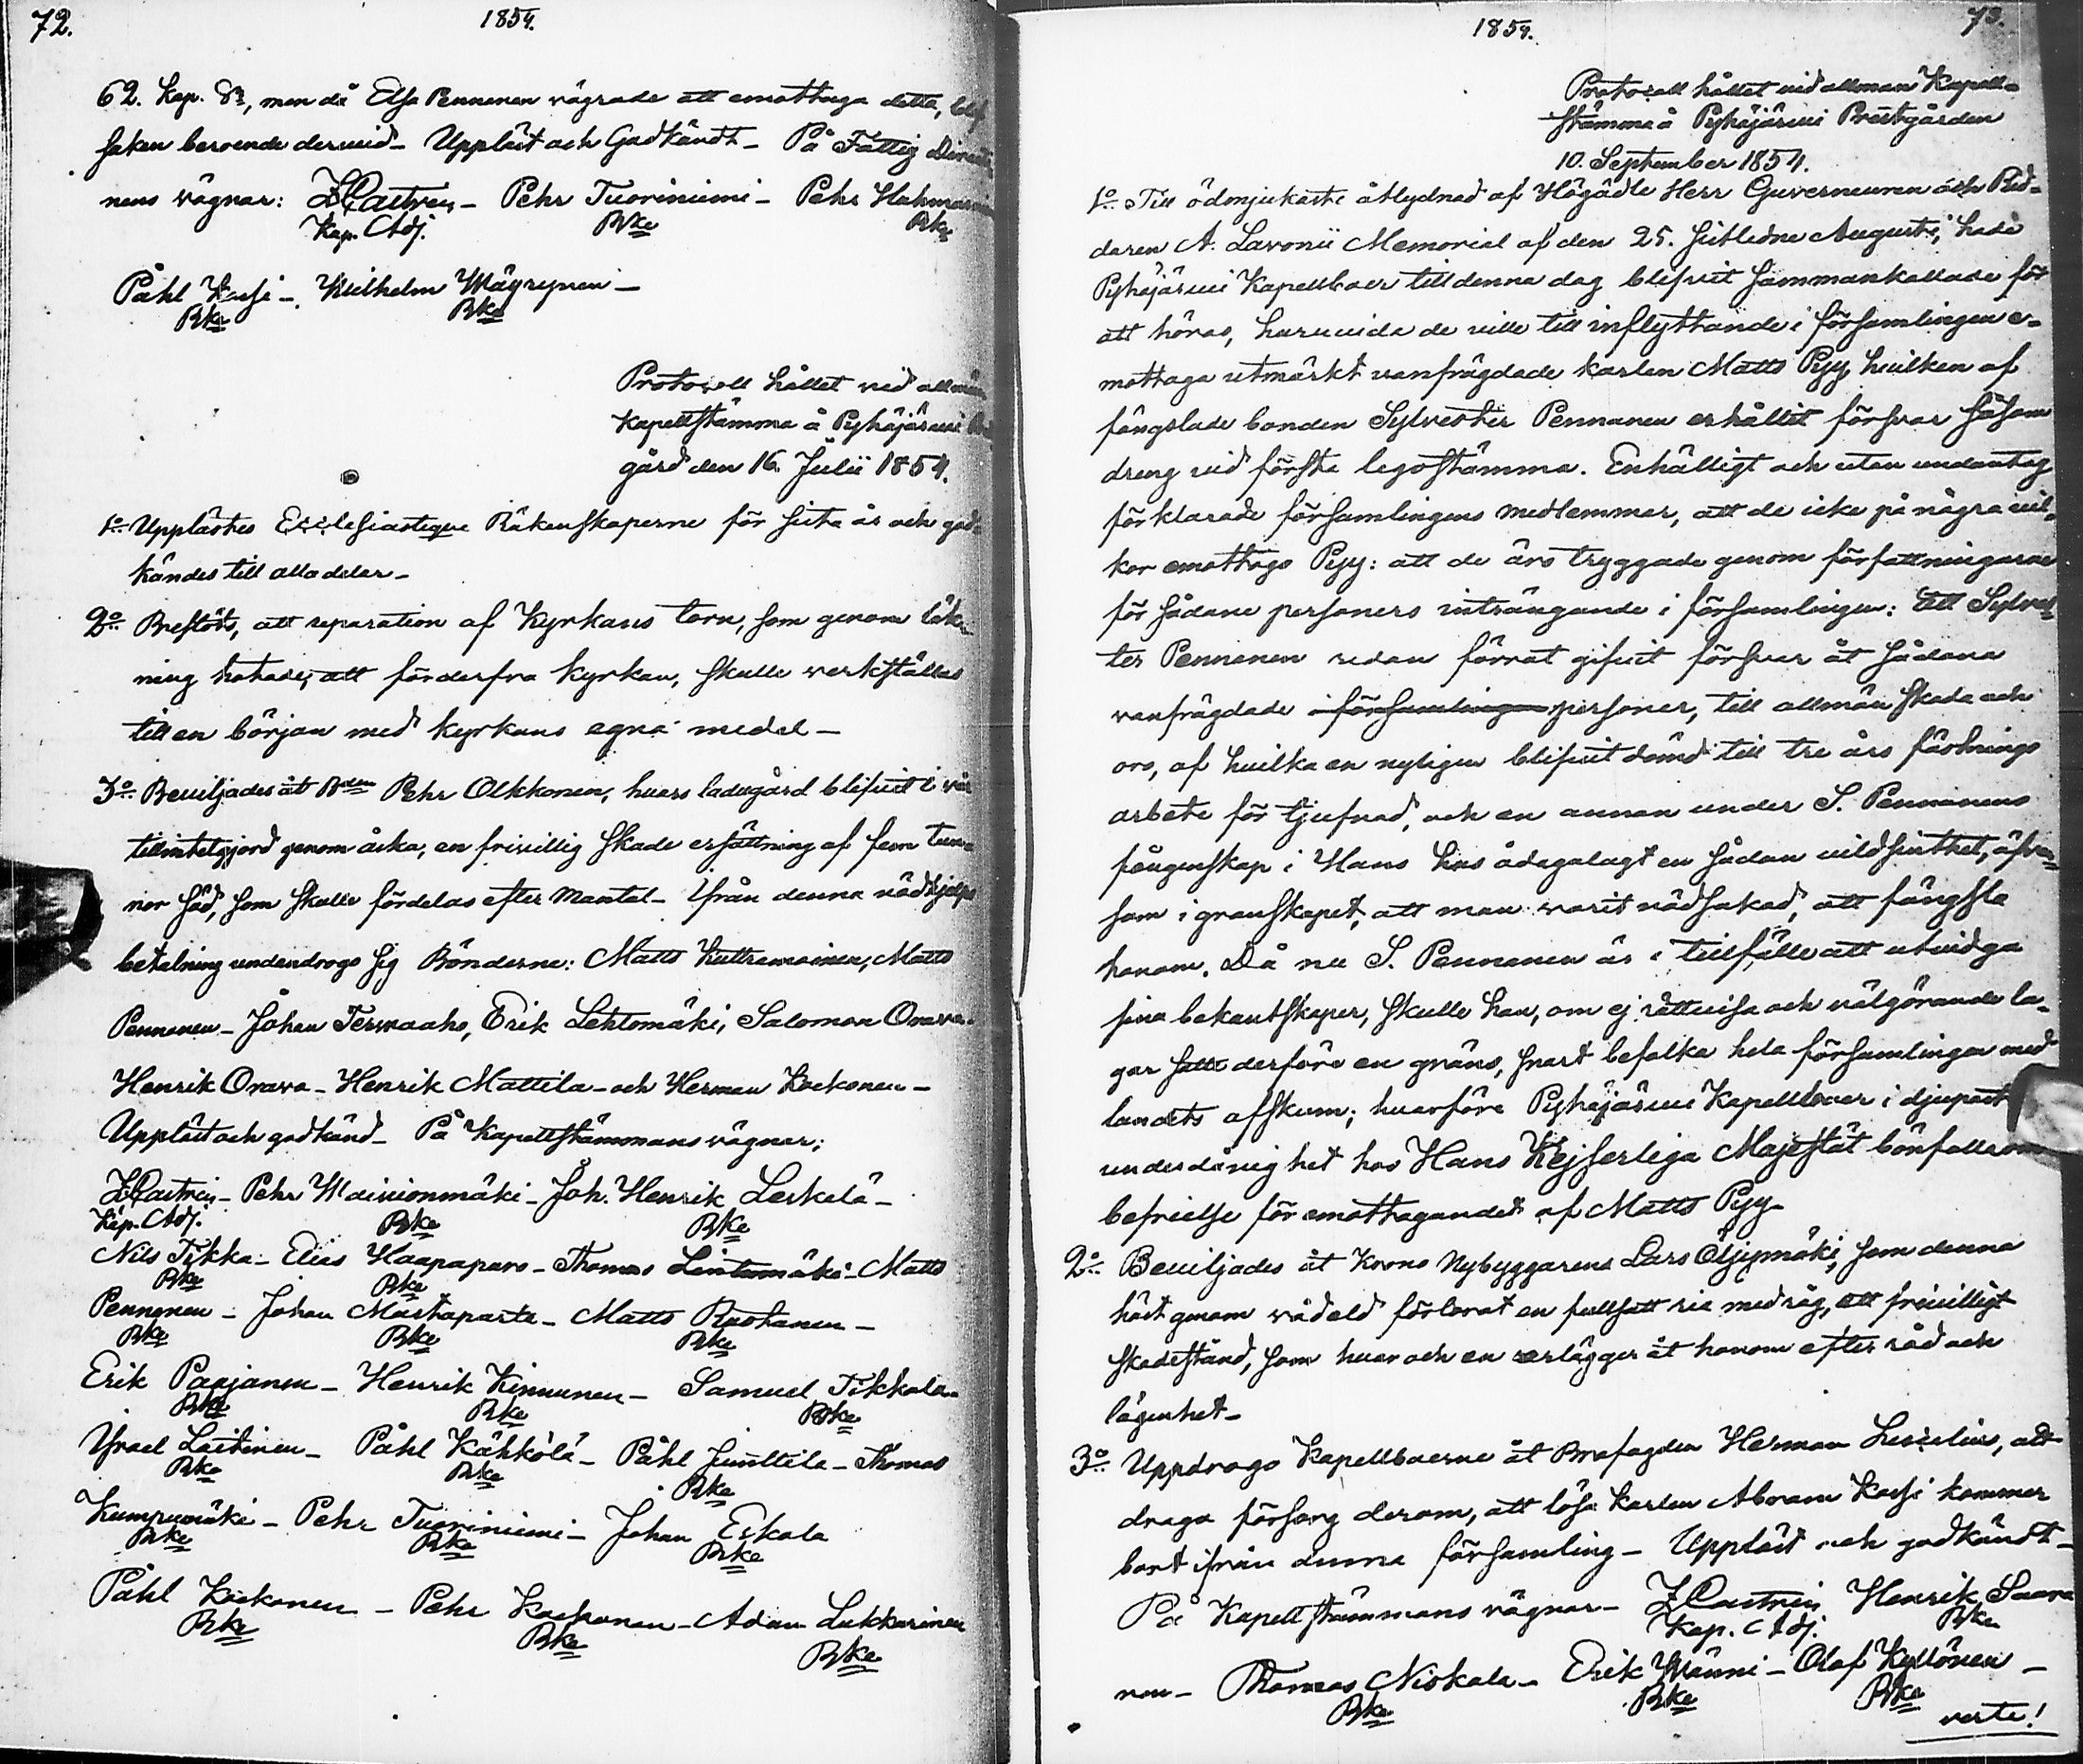 72.
1854.
62. Kap. Sr, men då Elsa Pennanen vägrade att emottaga detta, blef
saken beroende dervid_ Uppläst och Godkändt_ På Fattig Direktio
nens vägnar: Z Castren_ Pehr Tuoriniemi_ Pehr
Kap. Adj. Bke Bke
Påhl Kassi_ Wilhelm Mäyrynen_
Bke Bke
Protocoll hållet vid allmän
Kapellstämma å Pyhäjärvi
gård den 16. Julii 1854.
1o Upplästes Ecclesiastique Räkenskaperne för sista år och god-
kändes till alla delar_
2o Beslöts, att reparation af Kyrkans torn, som genom läk-
ning hotade, att förderfva kyrkan, skulle verkställas
till en början med kyrkans egna medel_
3o Beviljades åt Bden Pehr Olkkonen, hvars ladugård blifvit i vår
tillintetgjord genom åska, en frivillig skade ersättning af fem tun-
nor säd, som skulle fördelas efter mantal_ Ifrån denna nödhjelps
betalning undandrogo sig Bönderne: Matts Kuttramoinen, Matts
Pennanen_ Johan Terwaaho, Erik Lehtomäki, Salomon Orava_
Henrik Orava_ Henrik Mattila_ och Herman Koekonen_
Uppläst och godkänd_ På Kapellstämmans vägnar:
Z Castren_ Pehr Maivionmäki_ Joh. Henrik Leskelä_
Kap. Adj. Bke Bke
Nils Tikka_ Elias Haapapuro_ Thomas Lintumäki_ Matts
Bke Bke
Pennanen_ Johan Mustaparta_ Matts Ruohanen_
Bke Bke Bke
Erik Paajanen_ Henrik Kinnunen_ Samuel Tikkala_
Bke Bke Bke
Israel Laitinen_ Påhl Kähkölä_ Påhl Junttila_ Thomas
Bke Bke Bke
Kumpumäki_ Pehr Tuoriniemi_ Johan Eskola
Bke Bke Bke
Påhl Koekonen_ Pehr Kosponen_ Adam Lukkarinen
Bke Bke Bke
1854.
73.
Protocoll hållet vid allmän Kapell=
stämma å Pyhäjärvi Prestgården
10. September 1854.
1o Till ödmjukaste åtlydnad af Högädle Herr Guverneuren och Rid-
daren A. Lavonii Memorial af den 25. sistledne Augusti, hade
Pyhäjärvi Kapellboer till denna dag blifvit sammankallade för
att höras, huruvida de ville till inflyttande i församlingen e-
mottaga utmärkt vanfrägdade karlen Matts Pyy, hvilken af
fängslade bonden Sylvester Pennanen erhållit försvar såsom
dreng vid förste legostämma. Enhälligt och utan undantag
förklarade församlingens medlemmar, att de icke på några vil-
kor emottogo Pyy: att de äro tryggade genom författningarne
för sådane personers inträngande i församlingen: att Sylves
ter Pennanen redan förrut gifvit försvar åt sådana
vanfrägdade i församlingen personer, till allmän skada och
oro, af hvilka en nyligen blifvit dömd till tre års fästnings
arbete för tjufnad, och en annan under S. Pennanens
fångenskap i Hans hus ådagalagt en sådan vildsinthet, äfven
som i granskapet, att man varit nödsakad, att fängsla
honom. Då nu S. Pennanen är i tillfälle att utvidga
sina bekantskaper, skulle han, om ej rättvisa och välgörande la-
gar satte derföre en gräns, snart befolka hela församlingen med
landets afskum; hvarföre Pyhäjärvi Kapellboer i djupast
underdånighet hos Hans Kejserliga Majestät bönfalla om
befrielse för emottagandet af Matts Pyy_
2o Beviljades åt Krono Nybyggarene Lars Öljymäki, som denna
höst genom vådeld förlorat en fullsatt ria med råg, ett frivilligt
skadestånd, som hvar och en erlägger åt honom efter råd och
lägenhet_
3o Uppdrogo Kapellboerne åt Brofogden Herman Lucelius, att
draga försorg derom, att lösa karlen Abram Kassi kommer
bort ifrån denna församling_ Uppläst och godkändt_
På Kapellstämmans vägnar_ Z Castren Henrik Saara
Kap. Adj. Bke
nen_ Thomas Niskala_ Erik Männi_ Olaf Kyllönen_
Bke Bke Bke
verte!